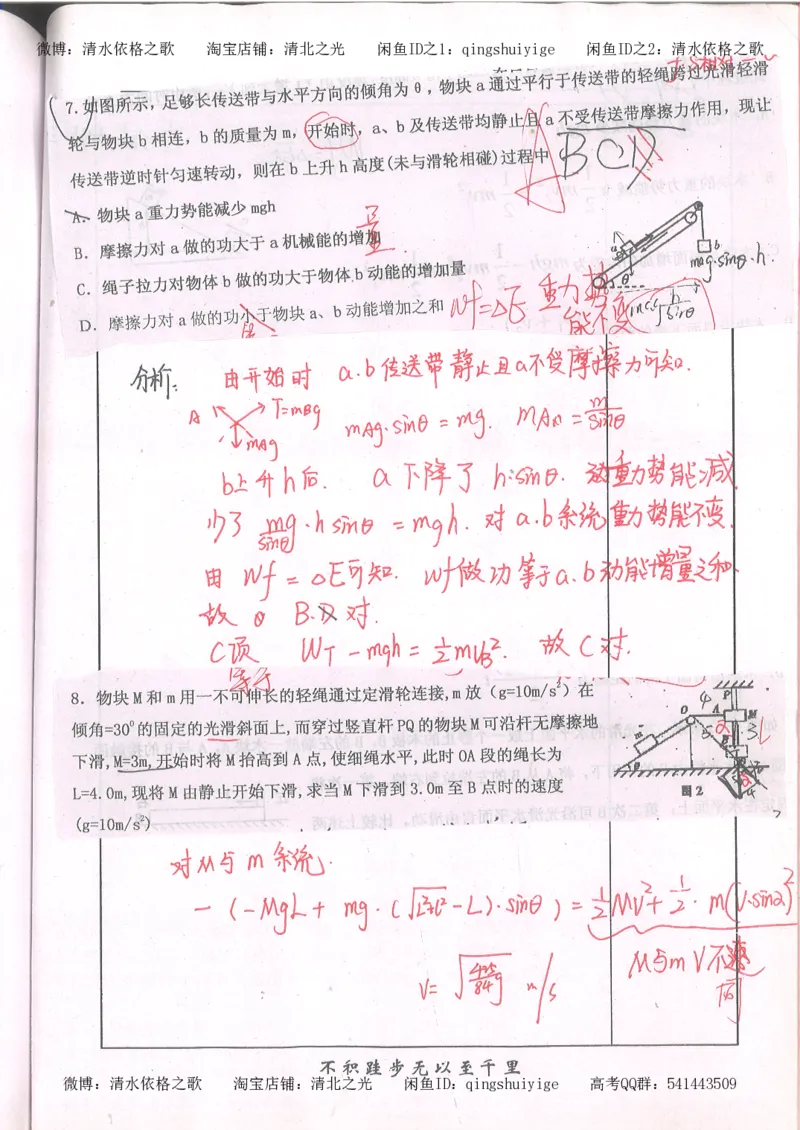 微博：清水依格之歌 淘宝店铺：清北之光 闲鱼ID之1：qingshuiyige 闲鱼ID之2：清水依格之歌
7.如图所示，足够长传送带与水平方向的倾角为θ，物块a通过平行于传送带的轻绳跨过光滑轻滑
轮与物块b相连，b的质量为m，开始时，a、b及传送带均静止且a不受传送带摩擦力作用，现让
传送带逆时针匀速转动，则在b上升h高度(未与滑轮相碰)过程中
ABCD
A．物块a重力势能减少mgh
B．摩擦力对a做的功大于a机械能的增加
量
C．绳子拉力对物体b做的功大于物体b动能的增加量
D．摩擦力对a做的功小于物块a、b动能增加之和
a
b
θ
mag·sinθ·h.
Wf=△E 重力势
能不变
分析：
由开始时 a.b传送带静止且a不受摩擦力可知.
T=mBg
mAg
mAg·sinθ=mg. mA=m/sinθ
b上升h后. a下降了h·sinθ. 动重力势能减
少了 mg/sinθ·hsinθ=mgh. 对a.b系统重力势能不变.
由Wf=△E可知. Wf做功等于a.b动能增量之和.
故 B.D对.
C项 WT-mgh=½mvB². 故C对.
等于
8．物块M和m用一不可伸长的轻绳通过定滑轮连接,m放（g=10m/s²）在
倾角=30⁰的固定的光滑斜面上,而穿过竖直杆PQ的物块M可沿杆无摩擦地
下滑,M=3m,开始时将M抬高到A点,使细绳水平,此时OA段的绳长为
L=4.0m,现将M由静止开始下滑,求当M下滑到3.0m至B点时的速度
(g=10m/s²)
O
4
P
A
M
5
3
m
B
图2
对M与m系统.
-(-MgL+mg·(√L²+L²-L)·sinθ)=½Mv²+½·m(v·sinα)²
M与m V不
同
V=
m/s
不积跬步无以至千里
微博：清水依格之歌 淘宝店铺：清北之光 闲鱼ID：qingshuiyige 高考QQ群：541443509